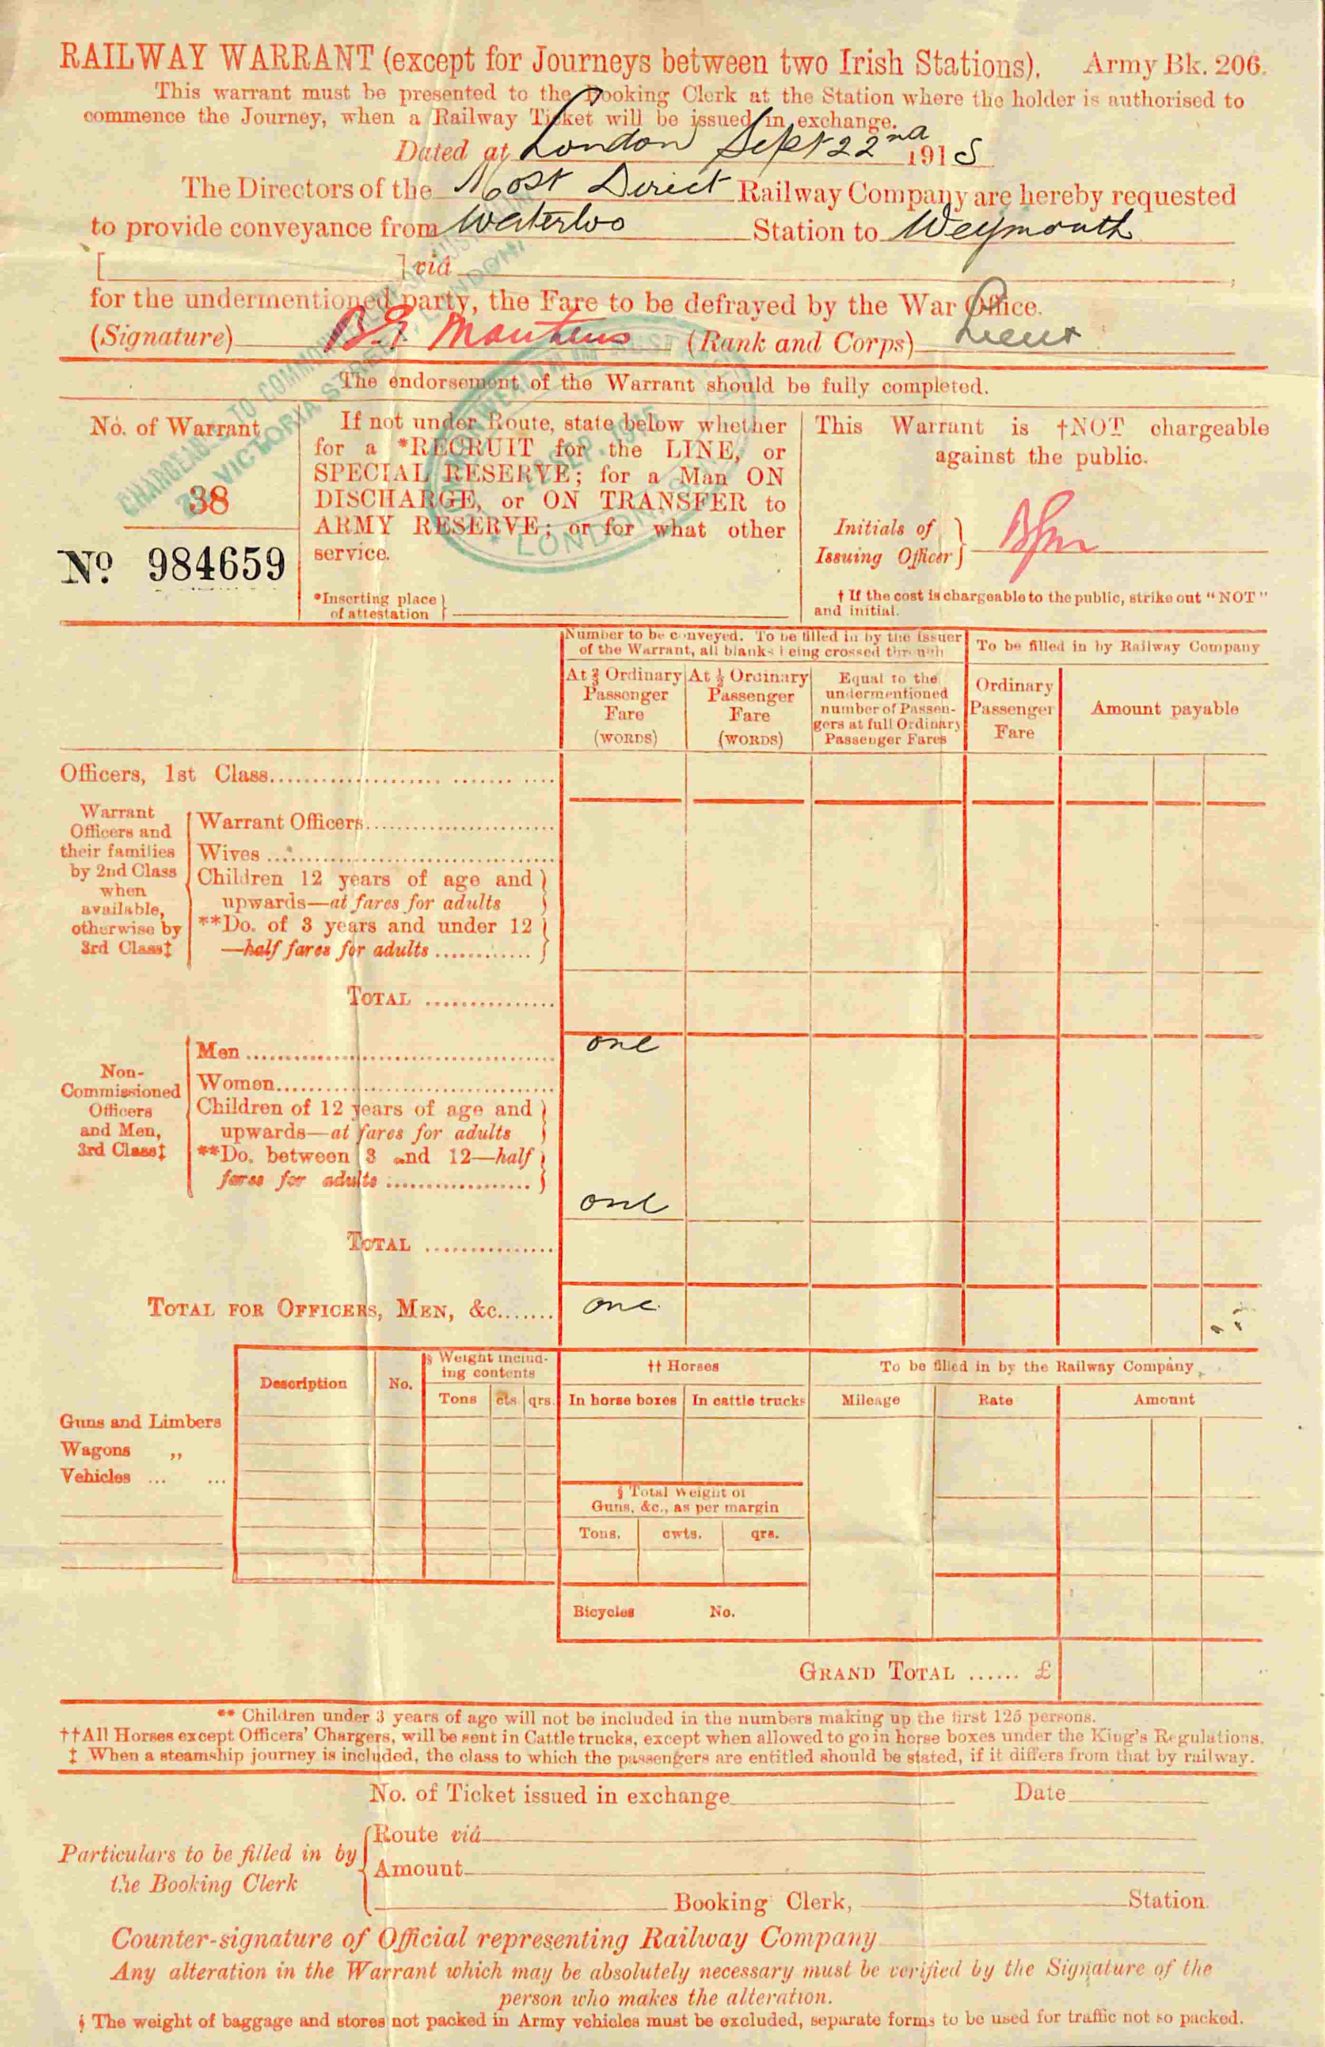 RAILWAY WARRANT (except for Journeys between two Irish Stations). Army Bk. 206.
This warrant must be presented to the Booking Clerk at the Station where the holder is authorised to
commence the Journey, when a Railway Ticket will be issued in exchange.
Dated at London Sept 22nd 1915
The Directors of the Most Direct Railway Company are hereby requested
to provide conveyance from Waterloo Station to Weymouth
[ ] viâ
for the undermentioned party, the Fare to be defrayed by the War Office.
(Signature) (Rank and Corps) Lieut
The endorsement of the Warrant should be fully completed.
CHARGEABLE TO COMMONWEALTH OF AUSTRALIA
VICTORIA STREET, LONDON
COMMONWEALTH OF AUSTRALIA
22 SEP. 1915
LONDON
No. of Warrant
38
No. 984659
If not under Route, state below whether
for a *RECRUIT for the LINE, or
SPECIAL RESERVE; for a Man ON
DISCHARGE, or ON TRANSFER to
ARMY RESERVE; or for what other
service.
*Inserting place
of attestation
This Warrant is †NOT chargeable
against the public.
Initials of
Issuing Officer
† If the cost is chargeable to the public, strike out "NOT"
and initial.
Number to be conveyed. To be filled in by the Issuer
of the Warrant, all blanks being crossed through
To be filled in by Railway Company
At ¾ Ordinary
Passenger
Fare
(WORDS)
At ½ Ordinary
Passenger
Fare
(WORDS)
Equal to the
undermentioned
number of Passen-
gers at full Ordinary
Passenger Fares
Ordinary
Passenger
Fare
Amount payable
Officers, 1st Class
Warrant
Officers and
their families
by 2nd Class
when
available,
otherwise by
3rd Class‡
Warrant Officers
Wives
Children 12 years of age and
upwards—at fares for adults
**Do. of 3 years and under 12
—half fares for adults
TOTAL
Non-
Commissioned
Officers
and Men,
3rd Class‡
Men one
Women
Children of 12 years of age and
upwards—at fares for adults
**Do. between 3 and 12—half
fares for adults
one
TOTAL
TOTAL FOR OFFICERS, MEN, &c. one
Description No. § Weight includ-
ing contents
Tons cts. qrs.
†† Horses
In horse boxes In cattle trucks
To be filled in by the Railway Company
Mileage Rate Amount
Guns and Limbers
Wagons ,,
Vehicles
§ Total Weight of
Guns, &c., as per margin
Tons. cwts. qrs.
Bicycles No.
GRAND TOTAL ...... £
** Children under 3 years of age will not be included in the numbers making up the first 125 persons.
††All Horses except Officers' Chargers, will be sent in Cattle trucks, except when allowed to go in horse boxes under the King's Regulations.
‡ When a steamship journey is included, the class to which the passengers are entitled should be stated, if it differs from that by railway.
No. of Ticket issued in exchange Date
Particulars to be filled in by
the Booking Clerk
Route viâ
Amount
Booking Clerk, Station.
Counter-signature of Official representing Railway Company
Any alteration in the Warrant which may be absolutely necessary must be verified by the Signature of the
person who makes the alteration.
§ The weight of baggage and stores not packed in Army vehicles must be excluded, separate forms to be used for traffic not so packed.